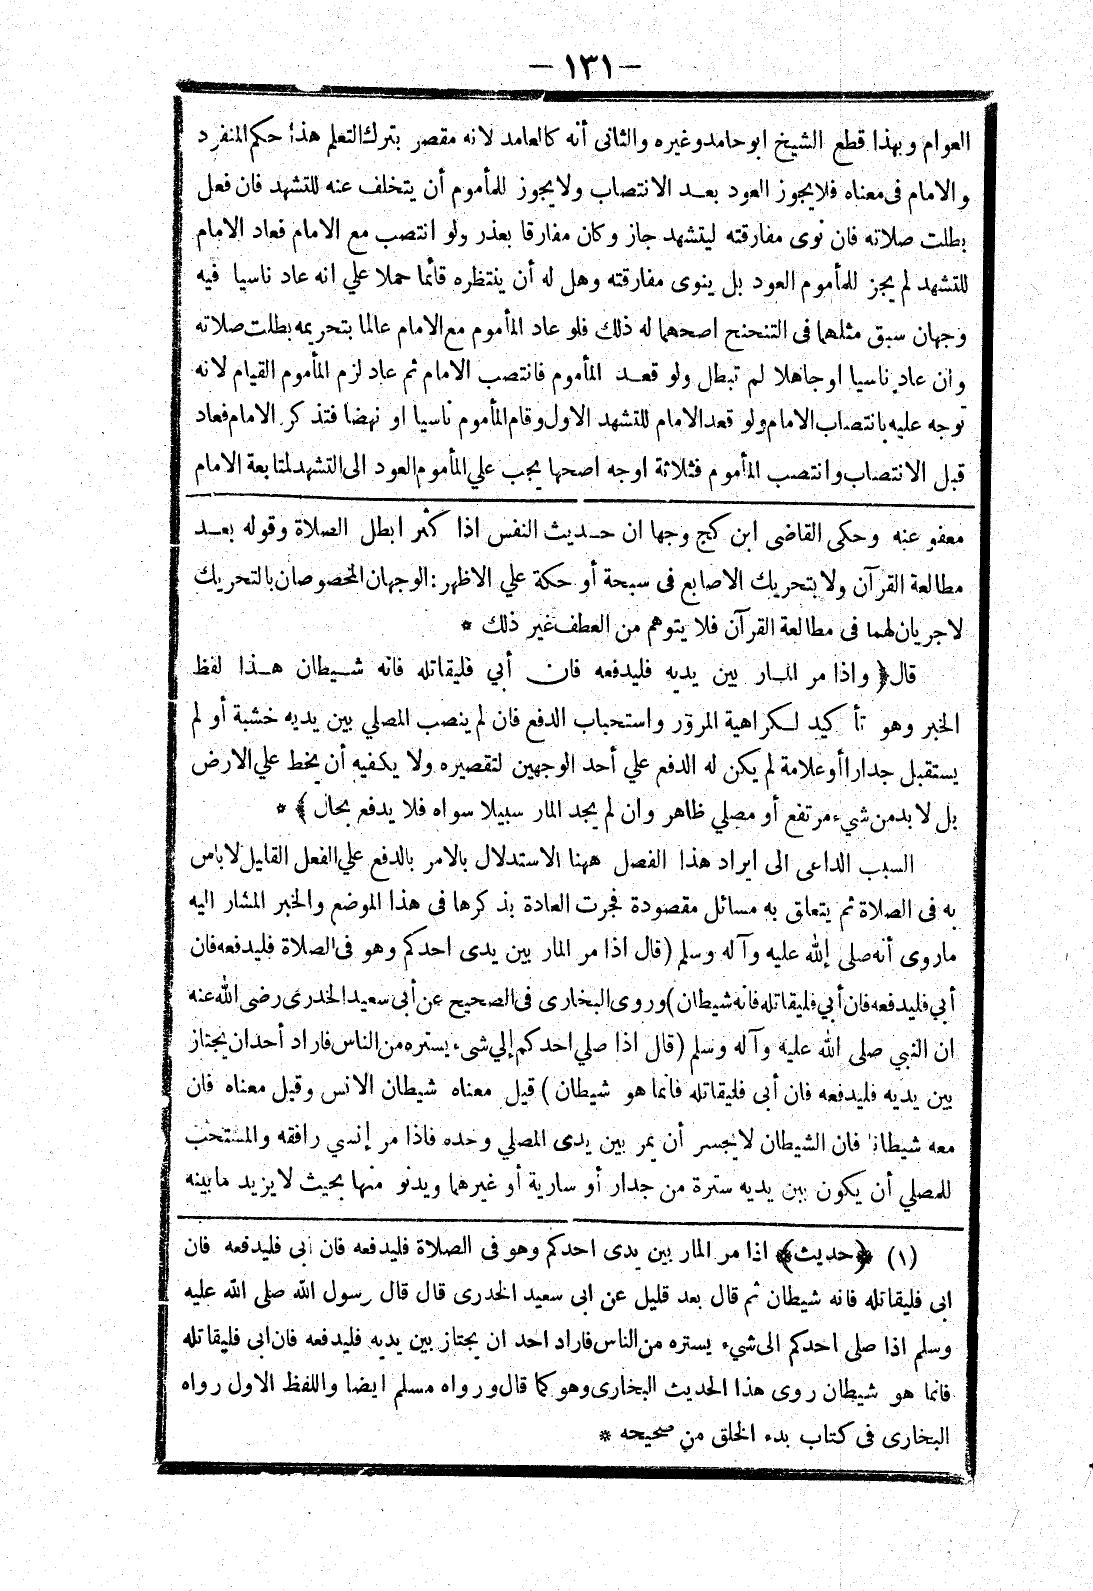 — ١٣١ —
العوام وبهذا قطع الشيخ ابو حامد وغيره والثانى أنه كالعامد لانه مقصر بترك التعلم هذا حكم المنفرد
والامام فى معناه فلا يجوز العود بعد الانتصاب ولا يجوز للمأموم أن يتخلف عنه للتشهد فان فعل
بطلت صلاته فان نوى مفارقته ليتشهد جاز وكان مفارقا بعذر ولو انتصب مع الامام فعاد الامام
للتشهد لم يجز للمأموم العود بل ينوى مفارقته وهل له أن ينتظره قائما حملا علي انه عاد ناسيا فيه
وجهان سبق مثلهما فى التنحنح اصحهما له ذلك فلو عاد المأموم مع الامام عالما بتحريمه بطلت صلاته
وان عاد ناسيا او جاهلا لم تبطل ولو قعد المأموم فانتصب الامام ثم عاد لزم المأموم القيام لانه
توجه عليه بانتصاب الامام ولو قعد الامام للتشهد الاول وقام المأموم ناسيا او نهضا فتذكر الامام فعاد
قبل الانتصاب وانتصب المأموم فثلاثة اوجه اصحها يجب علي المأموم العود الى التشهد لمتابعة الامام
معفو عنه وحكى القاضى ابن كج وجها ان حديث النفس اذا كثر ابطل الصلاة وقوله بعد
مطالعة القرآن ولا بتحريك الاصابع فى سبحة أو حكة علي الاظهر: الوجهان المخصوصان بالتحريك
لا جريان لهما فى مطالعة القرآن فلا يتوهم من العطف غير ذلك *
قال ﴿ واذا مر المار بين يديه فليدفعه فان أبي فليقاتله فانه شيطان هذا لفظ
الخبر وهو تأكيد لكراهية المرور واستحباب الدفع فان لم ينصب المصلي بين يديه خشبة أو لم
يستقبل جدارا أو علامة لم يكن له الدفع علي أحد الوجهين لتقصيره ولا يكفيه أن يخط علي الارض
بل لا بد من شيء مرتفع أو مصلي ظاهر وان لم يجد المار سبيلا سواه فلا يدفع بحال ﴾ *
السبب الداعى الى ايراد هذا الفصل ههنا الاستدلال بالامر بالدفع علي الفعل القليل لا باس
به فى الصلاة ثم يتعلق به مسائل مقصودة فجرت العادة بذكرها فى هذا الموضع والخبر المشار اليه
ماروى أنه صلى الله عليه وآله وسلم (قال اذا مر المار بين يدى احدكم وهو فى الصلاة فليدفعه فان
أبي فليدفعه فان أبي فليقاتله فانه شيطان) وروى البخارى فى الصحيح عن أبى سعيد الخدرى رضى الله عنه
ان النبي صلى الله عليه وآله وسلم (قال اذا صلي احدكم إلي شىء يستره من الناس فاراد أحد ان يجتاز
بين يديه فليدفعه فان أبى فليقاتله فانما هو شيطان) قيل معناه شيطان الانس وقيل معناه فان
معه شيطانا فان الشيطان لا يجسر أن يمر بين يدى المصلي وحده فاذا مر إنسي رافقه والمستحب
للمصلي أن يكون بين يديه سترة من جدار أو سارية أو غيرهما ويدنو منها بحيث لا يزيد ما بينه
(١) ﴿حديث﴾ اذا مر المار بين يدى احدكم وهو فى الصلاة فليدفعه فان ابى فليدفعه فان
ابى فليقاتله فانه شيطان ثم قال بعد قليل عن ابى سعيد الخدرى قال قال رسول الله صلى الله عليه
وسلم اذا صلى احدكم الى شيء يستره من الناس فاراد احد ان يجتاز بين يديه فليدفعه فان ابى فليقاتله
فانما هو شيطان روى هذا الحديث البخارى وهو كما قال ورواه مسلم ايضا واللفظ الاول رواه
البخارى فى كتاب بدء الخلق من صحيحه *